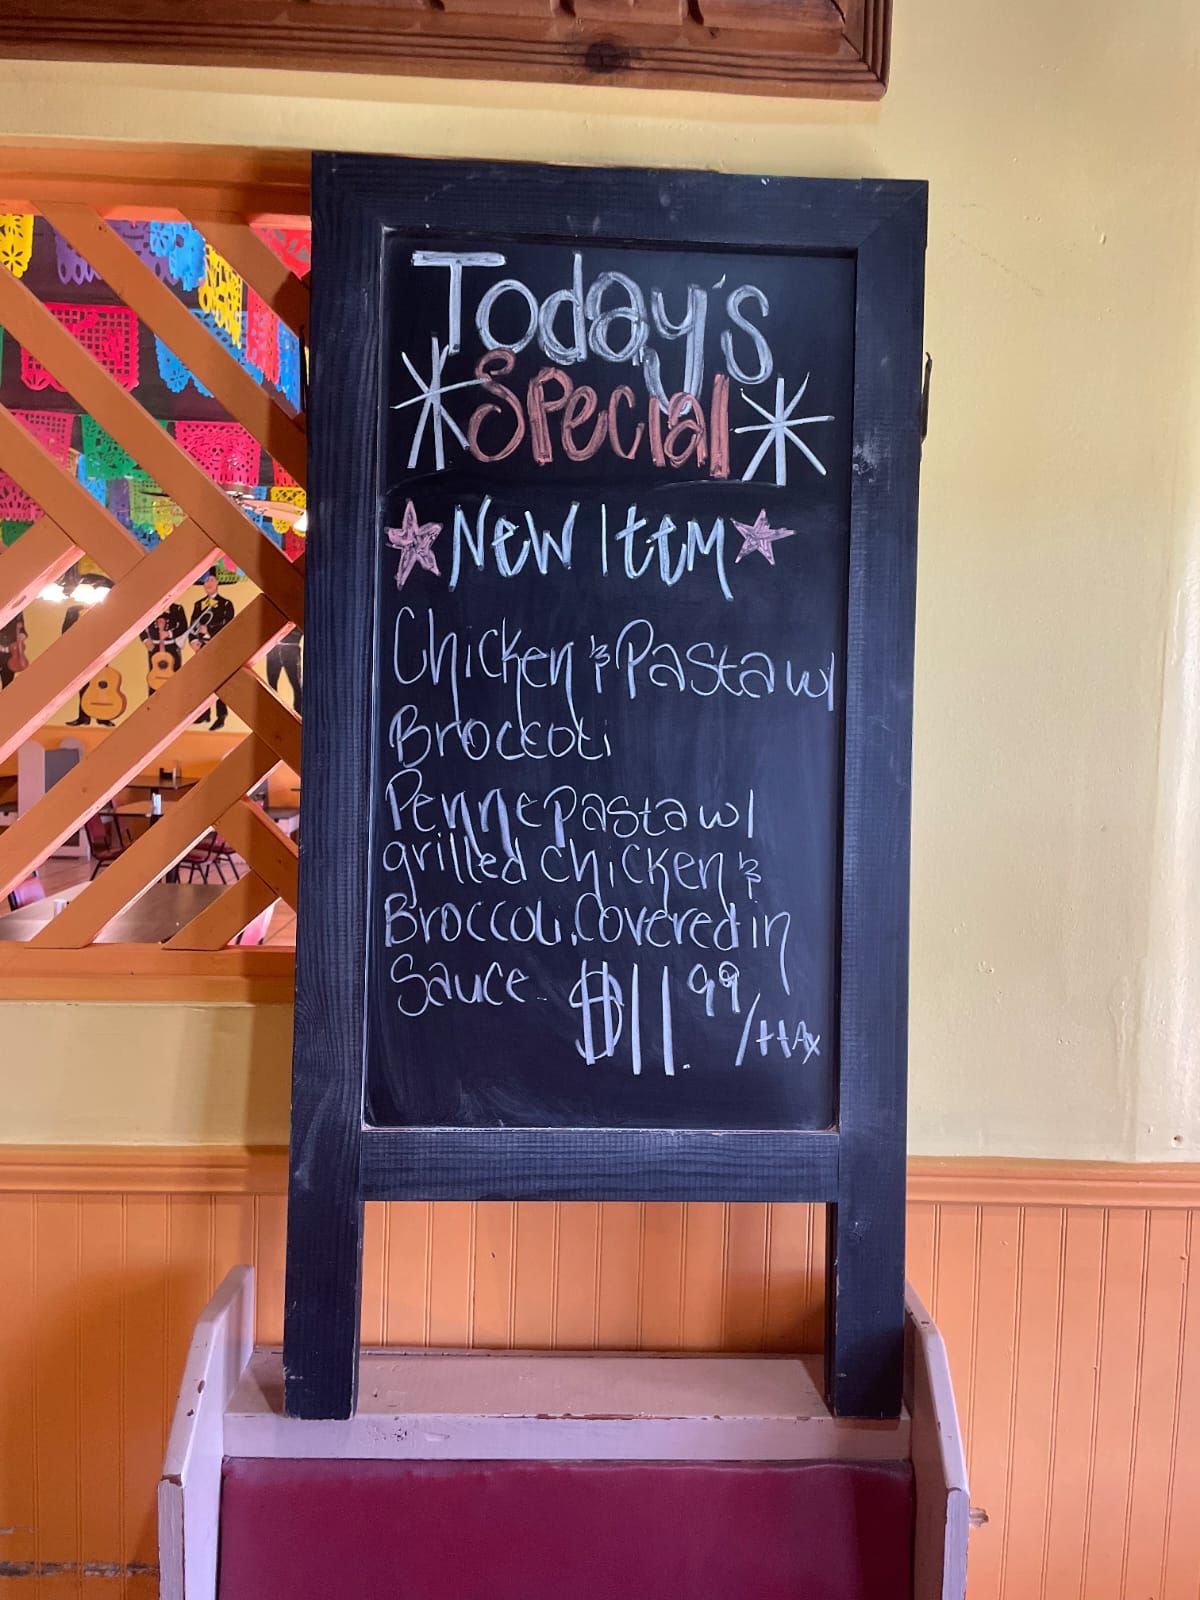 Today's
Special
New Item
Chicken & Pasta w/
Broccoli
Penne pasta w/
grilled chicken &
Broccoli. Covered in
Sauce. $11.99/+tAx